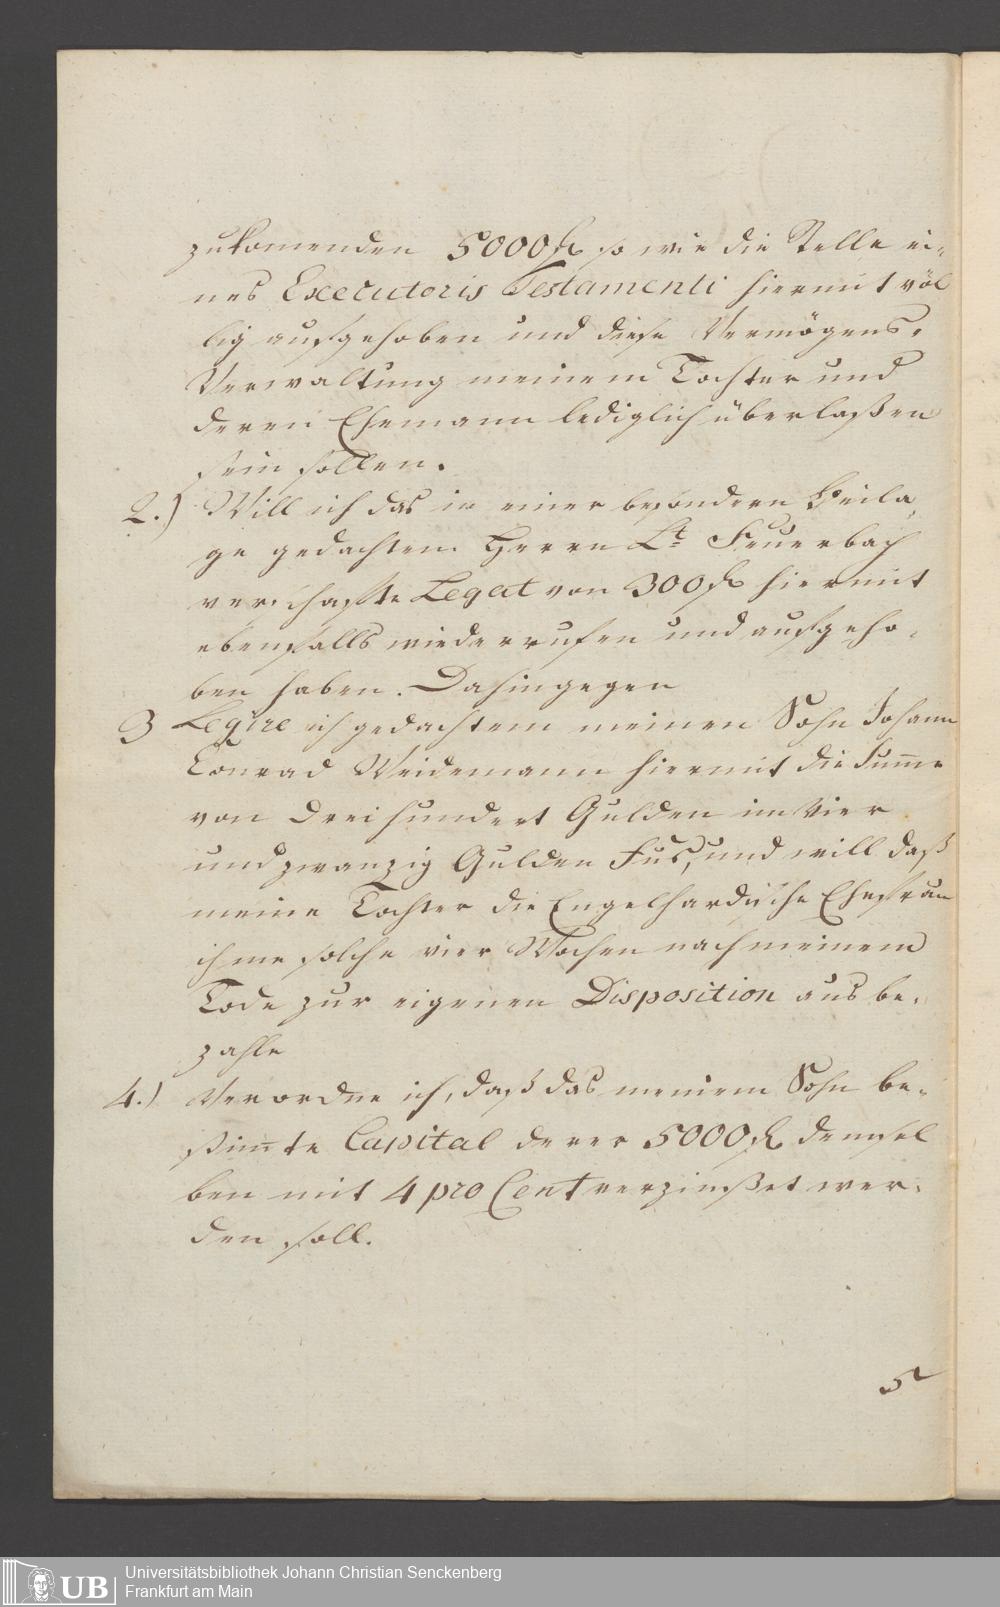 zukomenden 5000 fl so wie die Stelle ei-
nes Executoris Testamenti hiermit völ
lig aufgehoben und diese Vermögens-
Verwaltung meinem Tochter und
deren Ehemann lediglich überlaßen
sein sollen.
2.) Will ich das in einer besondern Beila-
ge gedachtem Herrn Lt Feuerbach
verschafte Legat von 300 fl hiermit
ebenfalls wiederrufen und aufgeho-
ben haben. Dahingegen
3 Legire ich gedachtem meinen Sohn Johann
Conrad Weidemann hiermit die Sum̄e
von dreihundert Gulden im Vier
und zwanzig Gulden Fus, und will daß
meine Tochter die Engelhardische Ehefrau
ihme solche vier Wochen nach meinem
Tode zur eigenen Disposition aus be-
zahle
4.) Verordne ich, daß das meinem Sohn be-
stim̄te Capital derer 5000 fl demsel
ben mit 4 pro Cent verzinßet wer-
den soll.
5
UB
Universitätsbibliothek Johann Christian Senckenberg
Frankfurt am Main